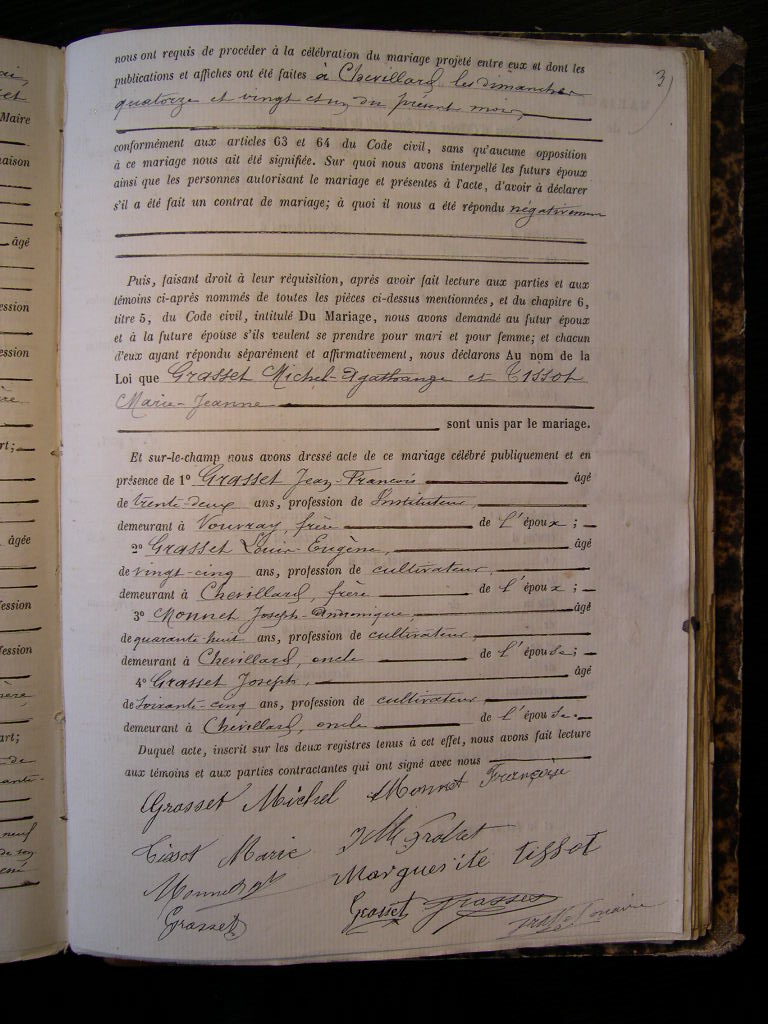 3
nous ont requis de procéder à la célébration du mariage projeté entre eux et dont les
publications et affiches ont été faites à Chevillard les dimanches
quatorze et vingt et un du présent mois,
conformément aux articles 63 et 64 du Code civil, sans qu'aucune opposition
à ce mariage nous ait été signifiée. Sur quoi nous avons interpellé les futurs époux
ainsi que les personnes autorisant le mariage et présentes à l'acte, d'avoir à déclarer
s'il a été fait un contrat de mariage; à quoi il nous a été répondu négativement
Puis, faisant droit à leur réquisition, après avoir fait lecture aux parties et aux
témoins ci-après nommés de toutes les pièces ci-dessus mentionnées, et du chapitre 6,
titre 5, du Code civil, intitulé Du Mariage, nous avons demandé au futur époux
et à la future épouse s'ils veulent se prendre pour mari et pour femme; et chacun
d'eux ayant répondu séparément et affirmativement, nous déclarons Au nom de la
Loi que Grasset Michel-Agathange et Tissot
Marie-Jeanne
sont unis par le mariage.
Et sur-le-champ nous avons dressé acte de ce mariage célébré publiquement et en
présence de 1º Grasset Jean-François âgé
de trente-deux ans, profession de Instituteur,
demeurant à Vouvray, frère de l'époux;
2º Grasset Louis-Eugène, âgé
de vingt-cinq ans, profession de cultivateur,
demeurant à Chevillard, frère de l'époux;
3º Monnet Joseph- âgé
de quarante-huit ans, profession de cultivateur
demeurant à Chevillard, oncle de l'épouse;
4º Grasset Joseph, âgé
de soixante-cinq ans, profession de cultivateur
demeurant à Chevillard, oncle de l'épouse.
Duquel acte, inscrit sur les deux registres tenus à cet effet, nous avons fait lecture
aux témoins et aux parties contractantes qui ont signé avec nous
Grasset Michel Monnet Françoise
Tissot Marie
Marguerite tissot
Grasset Grasset
Grasset